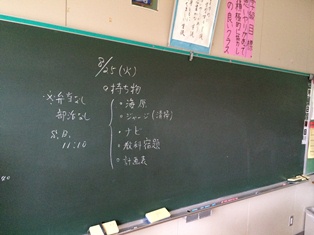 8/25(火)
○持ち物
・海原
・ジャージ(清掃)
・ナビ
・教科宿題
・計画表
※弁当なし
部活なし
S.D.
11:10